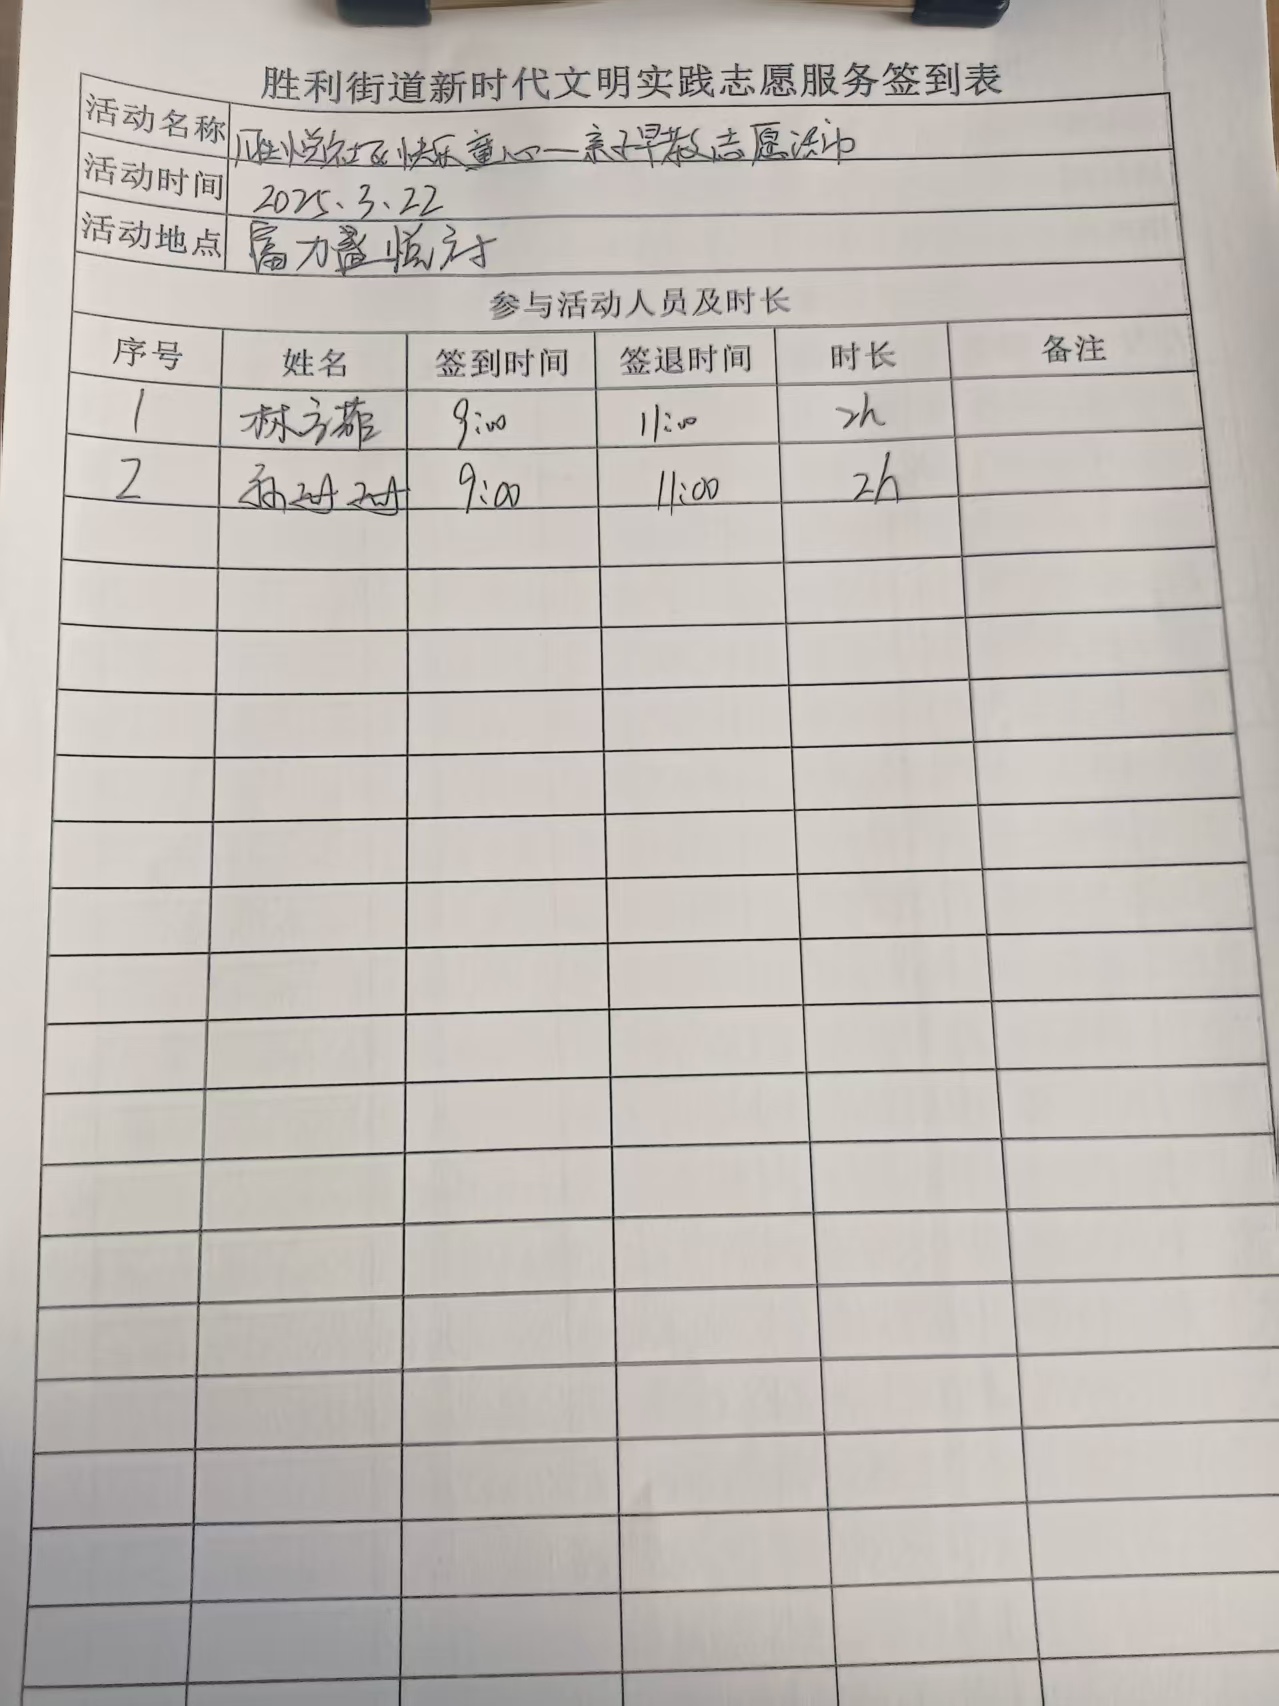 胜利街道新时代文明实践志愿服务签到表
活动名称 胜悦社区快乐童心一亲子早教志愿活动
活动时间 2025.3.22
活动地点 富力盈悦府
参与活动人员及时长
序号 姓名 签到时间 签退时间 时长 备注
1 林方茹 9:00 11:00 2h
2 孙 9:00 11:00 2h